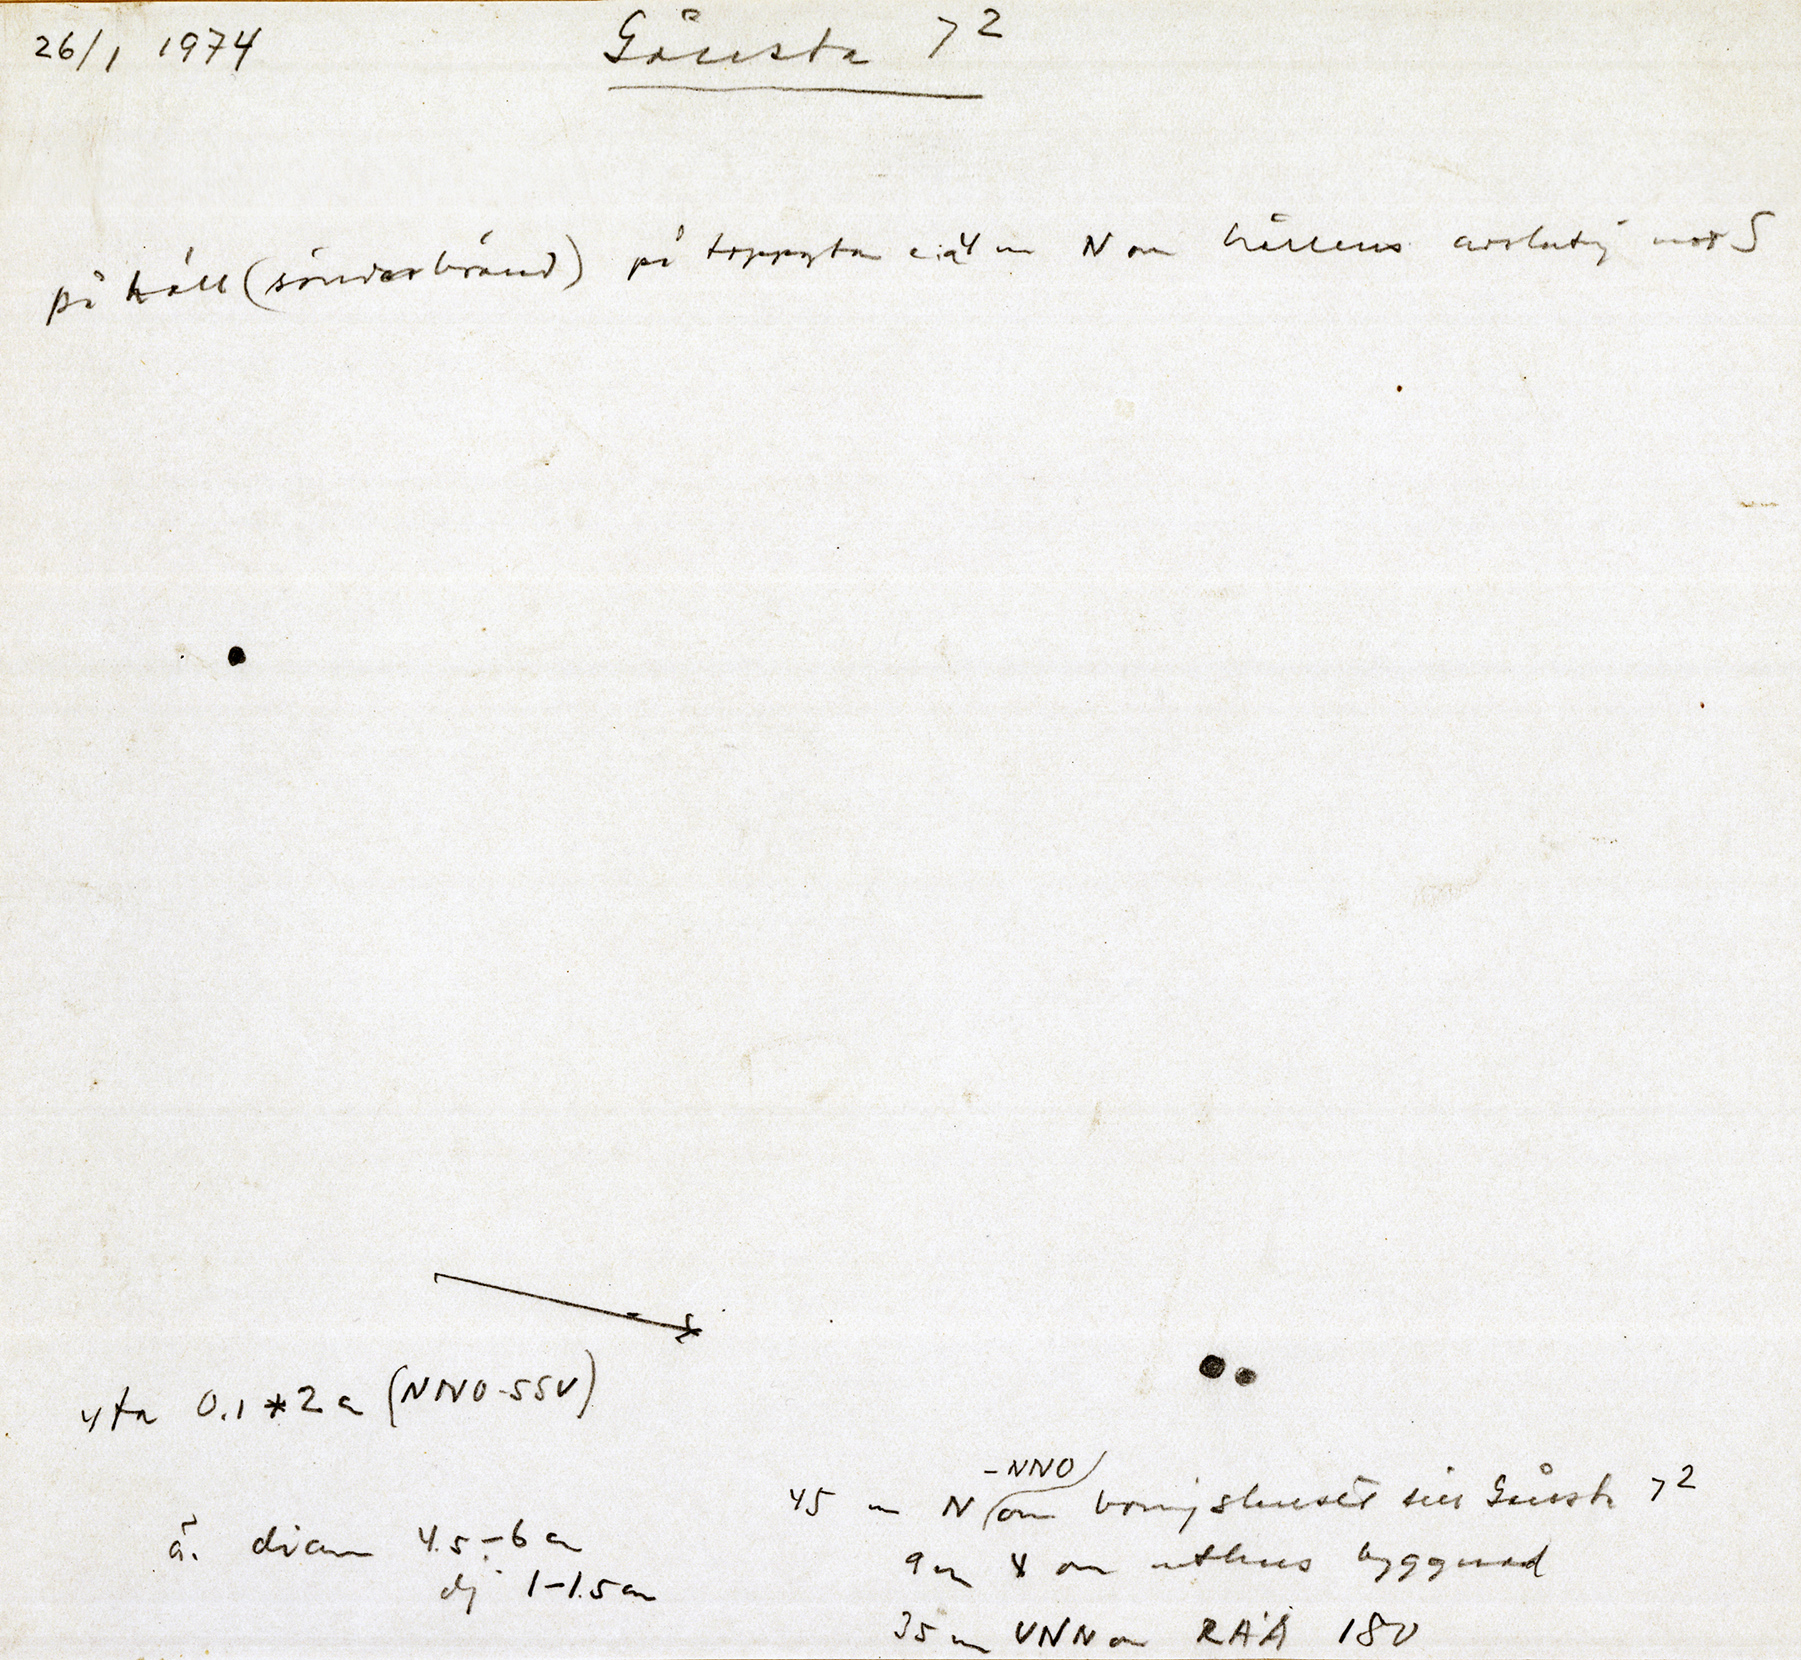 26/1 1974
Gånsta 7²
på häll (sönderbränd) på toppytan c:a 4 m N om hällens avslutn mot S
yta 0.1 * 2 m (NNO-SSV)
-NNO
45 m N om boningshuset till Gånsta 7²
å. diam 4.5-6 cm
9 m om uthus byggnad
dj 1-1.5 cm
35 m VNN om RAÄ 180